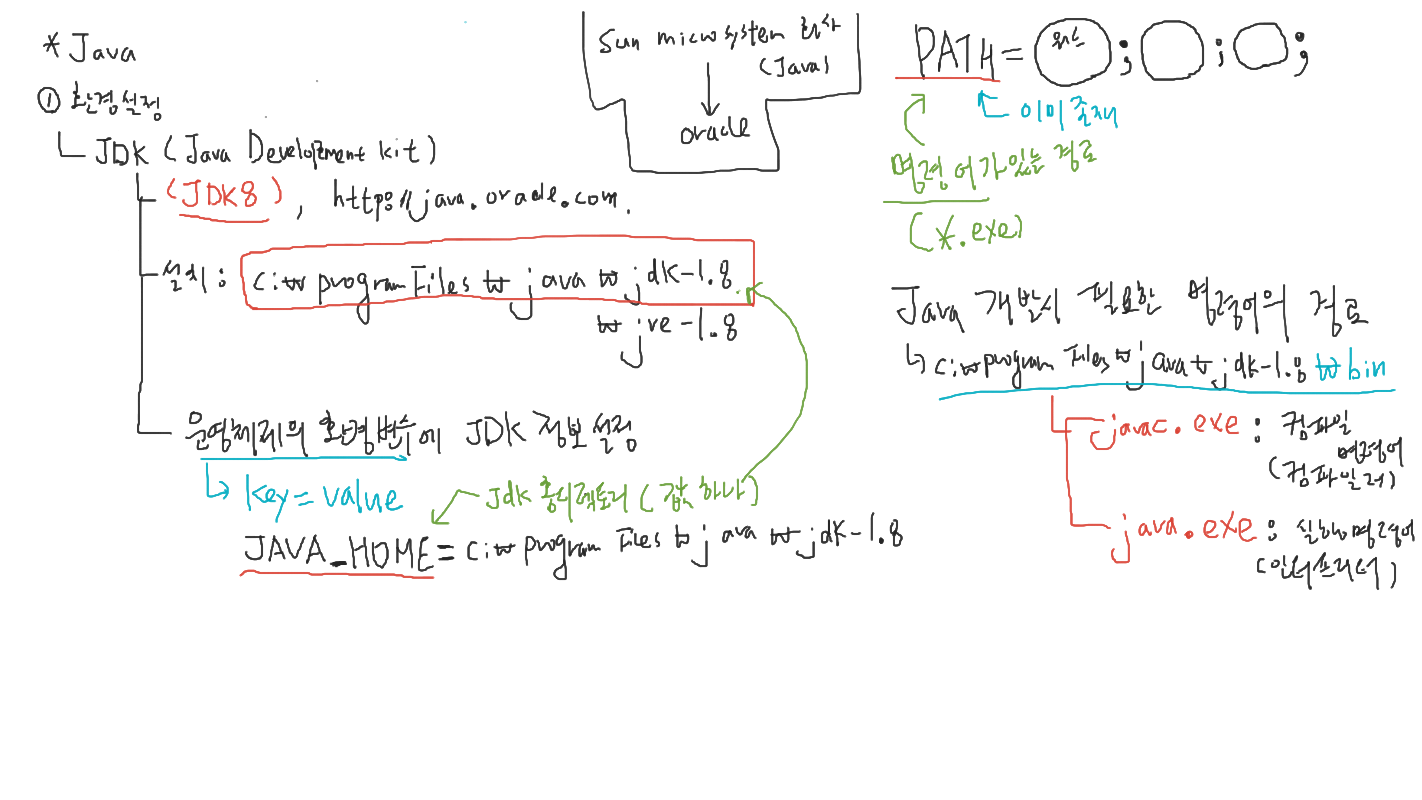 * Java
① 환경설정
JDK (Java Development kit)
(JDK8) , http://java.oracle.com.
설치 : C:₩program Files ₩ java ₩ jdk-1.8
₩ jre-1.8
운영체제의 환경변수에 JDK 정보설정
key = value
Jdk 홈디렉토리 (값 하나)
JAVA_HOME = C:₩program Files ₩ java ₩ jdk-1.8
Sun microsystem 회사
(Java)
oracle
PATH = ; ; ;
이미 존재
명령어가있는 경로
(*.exe)
Java 개발시 필요한 명령어의 경로
C:₩program Files ₩ java ₩ jdk-1.8 ₩ bin
javac.exe : 컴파일
명령어
(컴파일러)
java.exe : 실행명령어
(인터프리터)